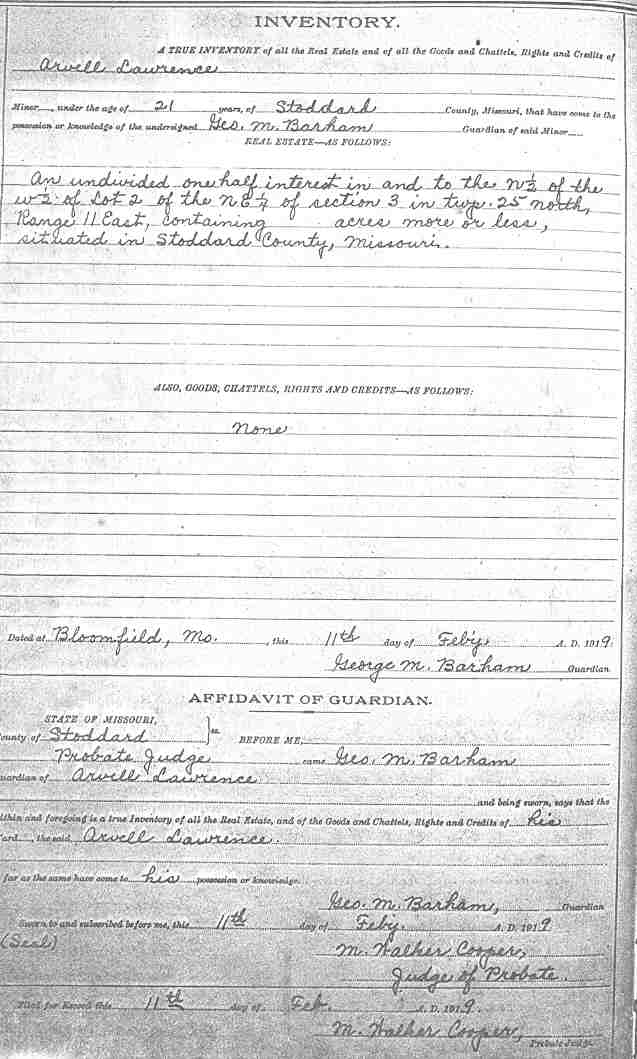 INVENTORY.
A TRUE INVENTORY of all the Real Estate and of all the Goods and Chattels, Rights and Credits of
Arvell Lawrence
Minor, under the age of 21 years, of Stoddard County, Missouri, that have come to the
possession or knowledge of the undersigned Geo. M. Barham Guardian of said Minor
REAL ESTATE—AS FOLLOWS:
An undivided one half interest in and to the N½ of the
W½ of Lot 2 of the NE¼ of section 3 in twp. 25 north,
Range 11 East, containing acres more or less,
situated in Stoddard County, Missouri.
ALSO, GOODS, CHATTELS, RIGHTS AND CREDITS—AS FOLLOWS:
None
Dated at Bloomfield, Mo. , this 11th day of Feby A. D. 1919.
George M. Barham Guardian
AFFIDAVIT OF GUARDIAN.
STATE OF MISSOURI,
ounty of Stoddard } ss. BEFORE ME,
Probate Judge came Geo. M. Barham
uardian of Arvell Lawrence
and being sworn, says that the
ithin and foregoing is a true Inventory of all the Real Estate, and of the Goods and Chattels, Rights and Credits of his
ard, the said Arvell Lawrence.
far as the same have come to his possession or knowledge.
Geo. M. Barham, Guardian
Sworn to and subscribed before me, this 11th day of Feby. A. D. 1919
(Seal)
M. Walker Cooper,
Judge of Probate.
Filed for Record this 11th day of Feb. A. D. 1919.
M. Walker Cooper,
Probate Judge.